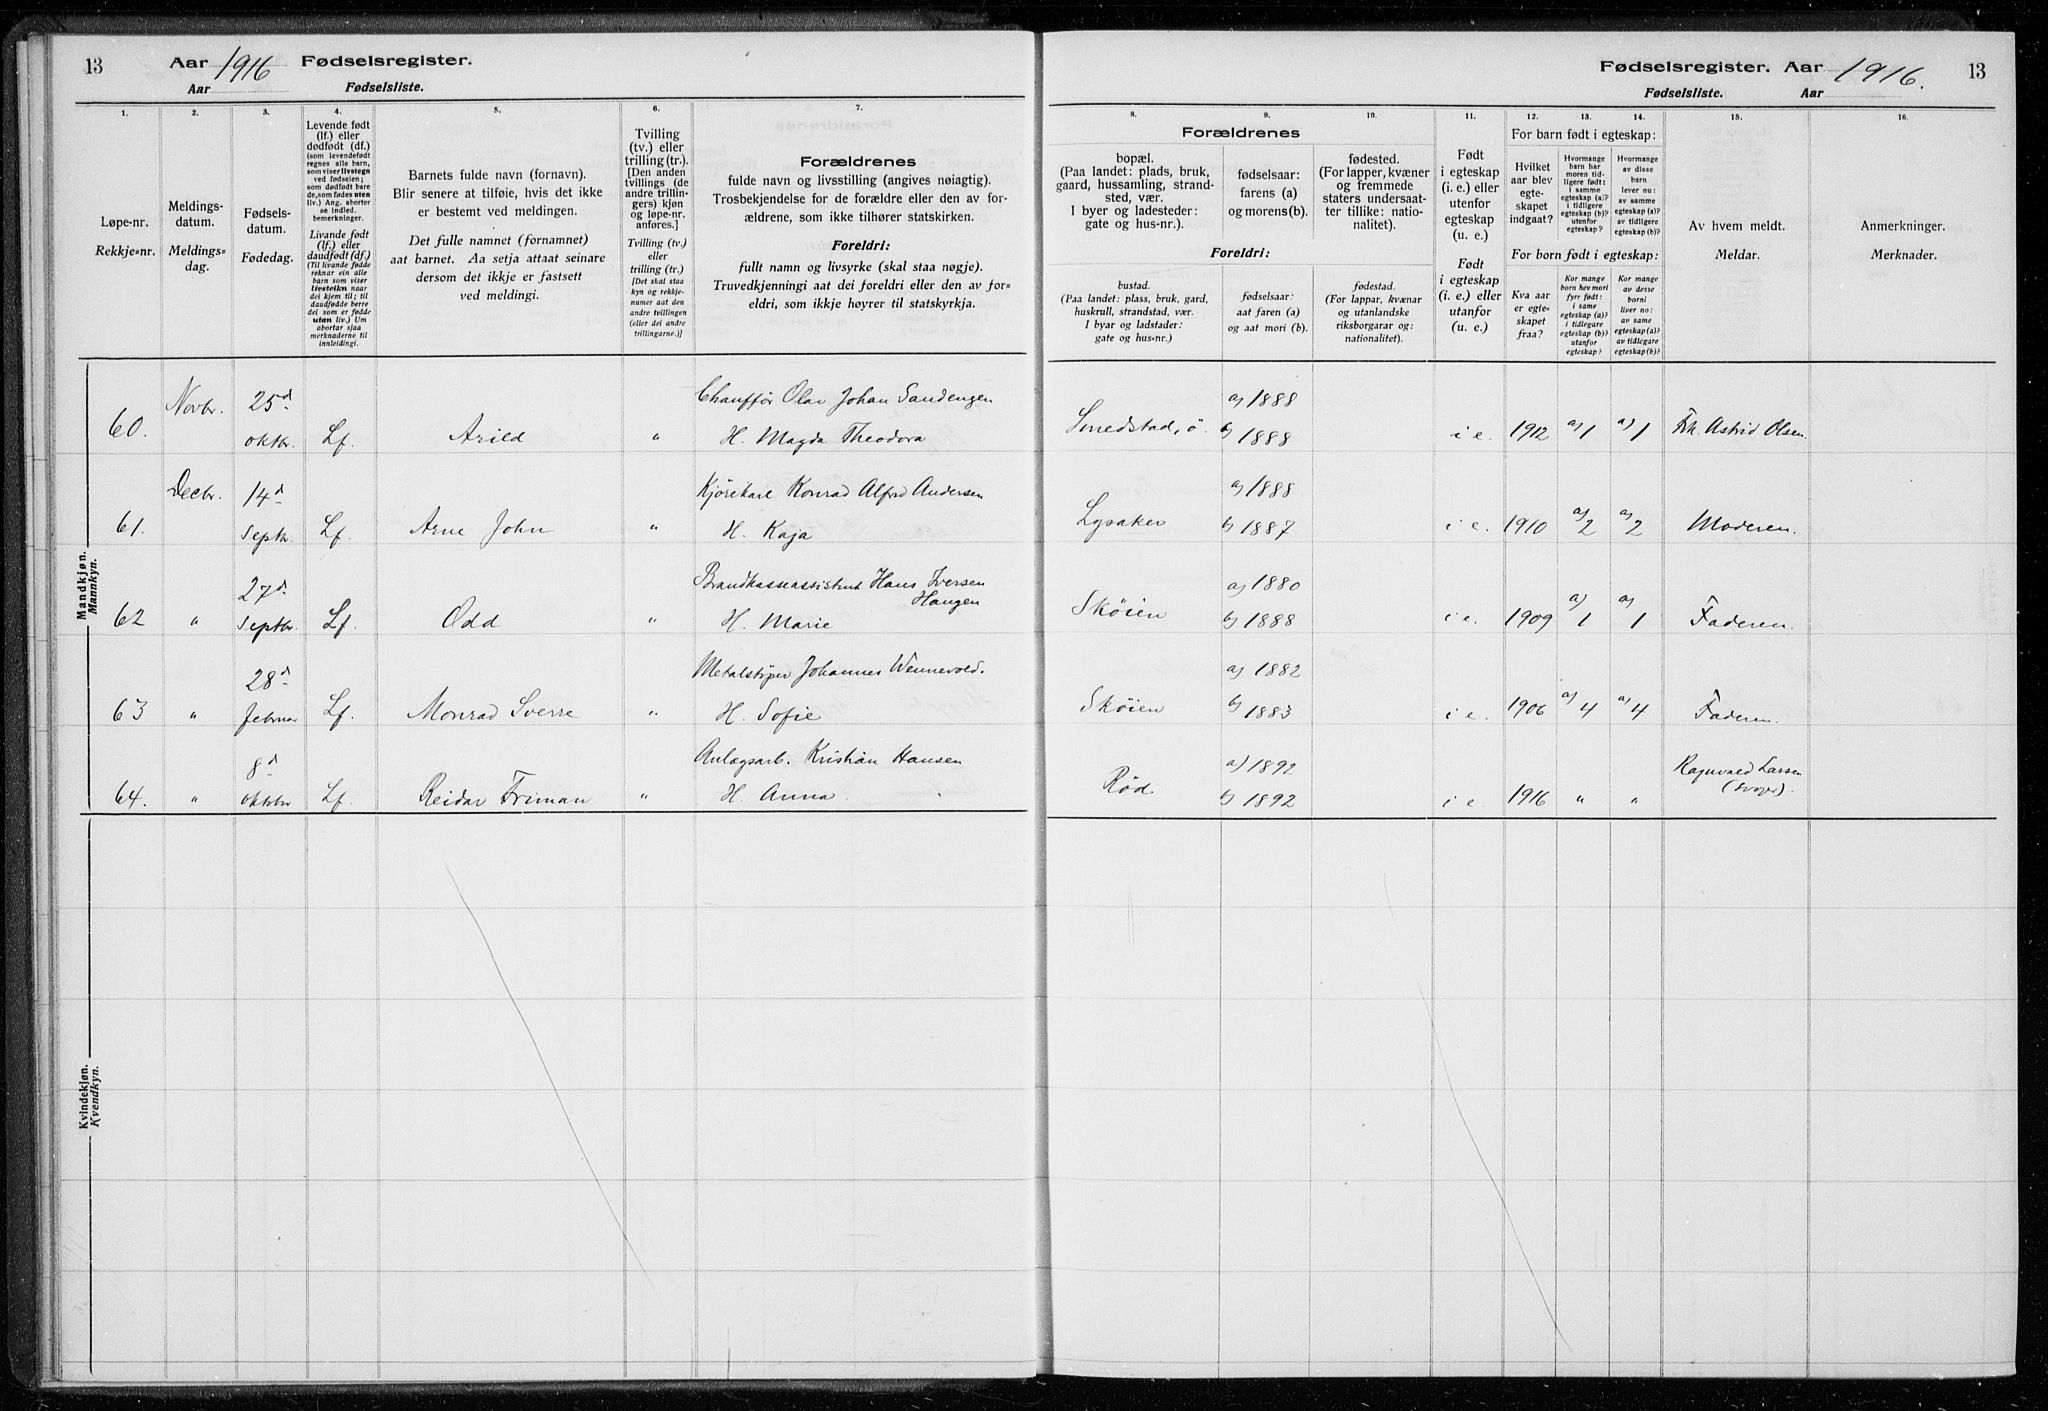 13
Aar 1916 Fødselsregister.
Aar Fødselsliste.
1.
2.
3.
4.
5.
6.
7.
Løpe-nr.
Rekkje-nr.
Meldings-
datum.
Meldings-
dag.
Fødsels-
datum.
Fødedag.
Levende født
(lf.) eller
dødfødt (df.)
(som levendefødt
regnes alle barn,
som viser livstegn
ved fødselen;
som dødfødt bare
de, som fødes uten
liv.) Ang. aborter
se indled.
bemerkninger.
Livande født
(lf.) eller
daudfødt (df.)
(Til livande fødde
reknar ein alle
barn som viser
livsteikn naar
dei kjem til; til
daudfødde berre
dei som er fødde
utan liv.) Um
abortar sjaa
merknaderne til
innleidingi.
Barnets fulde navn (fornavn).
Blir senere at tilføie, hvis det ikke
er bestemt ved meldingen.
Det fulle namnet (fornamnet)
aat barnet. Aa setja attaat seinare
dersom det ikkje er fastsett
ved meldingi.
Tvilling
(tv.) eller
trilling (tr.).
[Den anden
tvillings (de
andre trillin-
gers) kjøn
og løpe-nr.
anføres.]
Tvilling (tv.)
eller
trilling (tr.)
[Det skal staa
kyn og rekkje-
numer aat den
andre tvillingen
(eller dei andre
trillingarne.)]
Forældrenes
fulde navn og livsstilling (angives nøiagtig).
Trosbekjendelse for de forældre eller den av for-
ældrene, som ikke tilhører statskirken.
Foreldri:
fullt namn og livsyrke (skal staa nøgje).
Truvedkjenningi aat dei foreldri eller den av for-
eldri, som ikkje høyrer til statskyrkja.
Mandkjøn.
Mannkyn.
60. Novbr. 25d oktbr. Lf. Arild " Chauffør Olav Johan Sandengen
H. Magda Theodora
61. Decbr. 14d Septbr. Lf. Arne John " Kjørekarl Konrad Alfred Andersen
H. Kaja
62 " 27d Septbr. Lf. Odd " Brandkasseassistent Hans Iversen
Haugen
H. Marie
63 " 28d februar Lf. Monrad Sverre " Metalstøper Johannes Wennevold.
H. Sofie
64. " 8d oktbr Lf. Reidar Friman " Anlægsarb. Kristian Hansen
H. Anna
Kvindekjøn.
Kvendkyn.
Fødselsregister. Aar 1916. 13
Fødselsliste. Aar
8.
9.
10.
11.
12.
13.
14.
15.
16.
Forældrenes
bopæl.
(Paa landet: plads, bruk,
gaard, hussamling, strand-
sted, vær.
I byer og ladesteder:
gate og hus-nr.).
fødselsaar:
farens (a)
og morens (b).
fødested.
(For lapper, kvæner
og fremmede
staters undersaat-
ter tillike: natio-
nalitet).
Foreldri:
bustad.
(Paa landet: plass, bruk, gard,
huskrull, strandstad, vær.
I byar og ladstader:
gate og hus-nr.)
fødselsaar:
aat faren (a)
og aat mori (b).
fødestad.
(For lappar, kvænar
og utanlandske
riksborgarar og:
nationalitet).
Født
i egteskap
(i. e.) eller
utenfor
egteskap
(u. e.)
Født
i egteskap
(i. e.) eller
utanfor
(u. e.)
For barn født i egteskap:
Hvilket
aar blev
egte-
skapet
indgaat?
Hvormange
barn har
moren tid-
ligere født:
i samme
egteskap (a)?
i tidligere
egteskap (b)?
utenfor
egteskap?
Hvormange
av disse
barn
lever nu:
av samme
egteskap (a)?
av tidligere
egteskap (b)?
For born født i egteskap:
Kva aar
er egte-
skapet
fraa?
Kor mange
born hev mori
fyrr født:
i same
egteskap (a)?
i tidlegare
egteskap (b)?
utanfor
egteskap?
Kor mange
av desse
borni
liver no:
av same
egteskap (a)?
av tidlegare
egteskap (b)?
Av hvem meldt.
Meldar.
Anmerkninger.
Merknader.
Smedstad, ö. a) 1888 b) 1888 i e. 1912 a) 1 a) 1 Frk. Astrid Olsen
Lysaker a) 1888 b) 1887 i e. 1910 a) 2 a) 2 Moderen.
Skøien a) 1880 b) 1888 i e. 1909 a) 1 a) 1 Faderen.
Skøien a) 1882 b) 1883 i e. 1906 a) 4 a) 4 Faderen.
Rød a) 1892 b) 1892 i e. 1916 " " Ragnvald Larsen